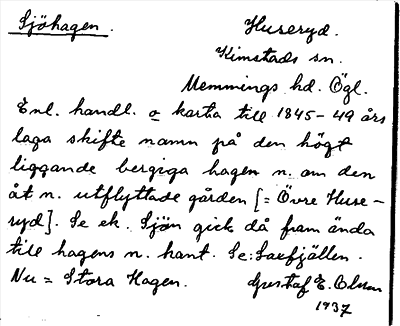 Sjöhagen.
Huseryd.
Kimstads sn.
Memmings hd. Ögl.
Enl. handl. o karta till 1845-49 års
laga skifte namn på den högt
liggande bergiga hagen n. om den
åt n. utflyttade gården [= Övre Huse-
ryd]. Se ek. Sjön gick då fram ända
till hagens n. kant. Se: Saefjällen.
Nu = Stora Hagen. Gustaf E. Olsson
1937